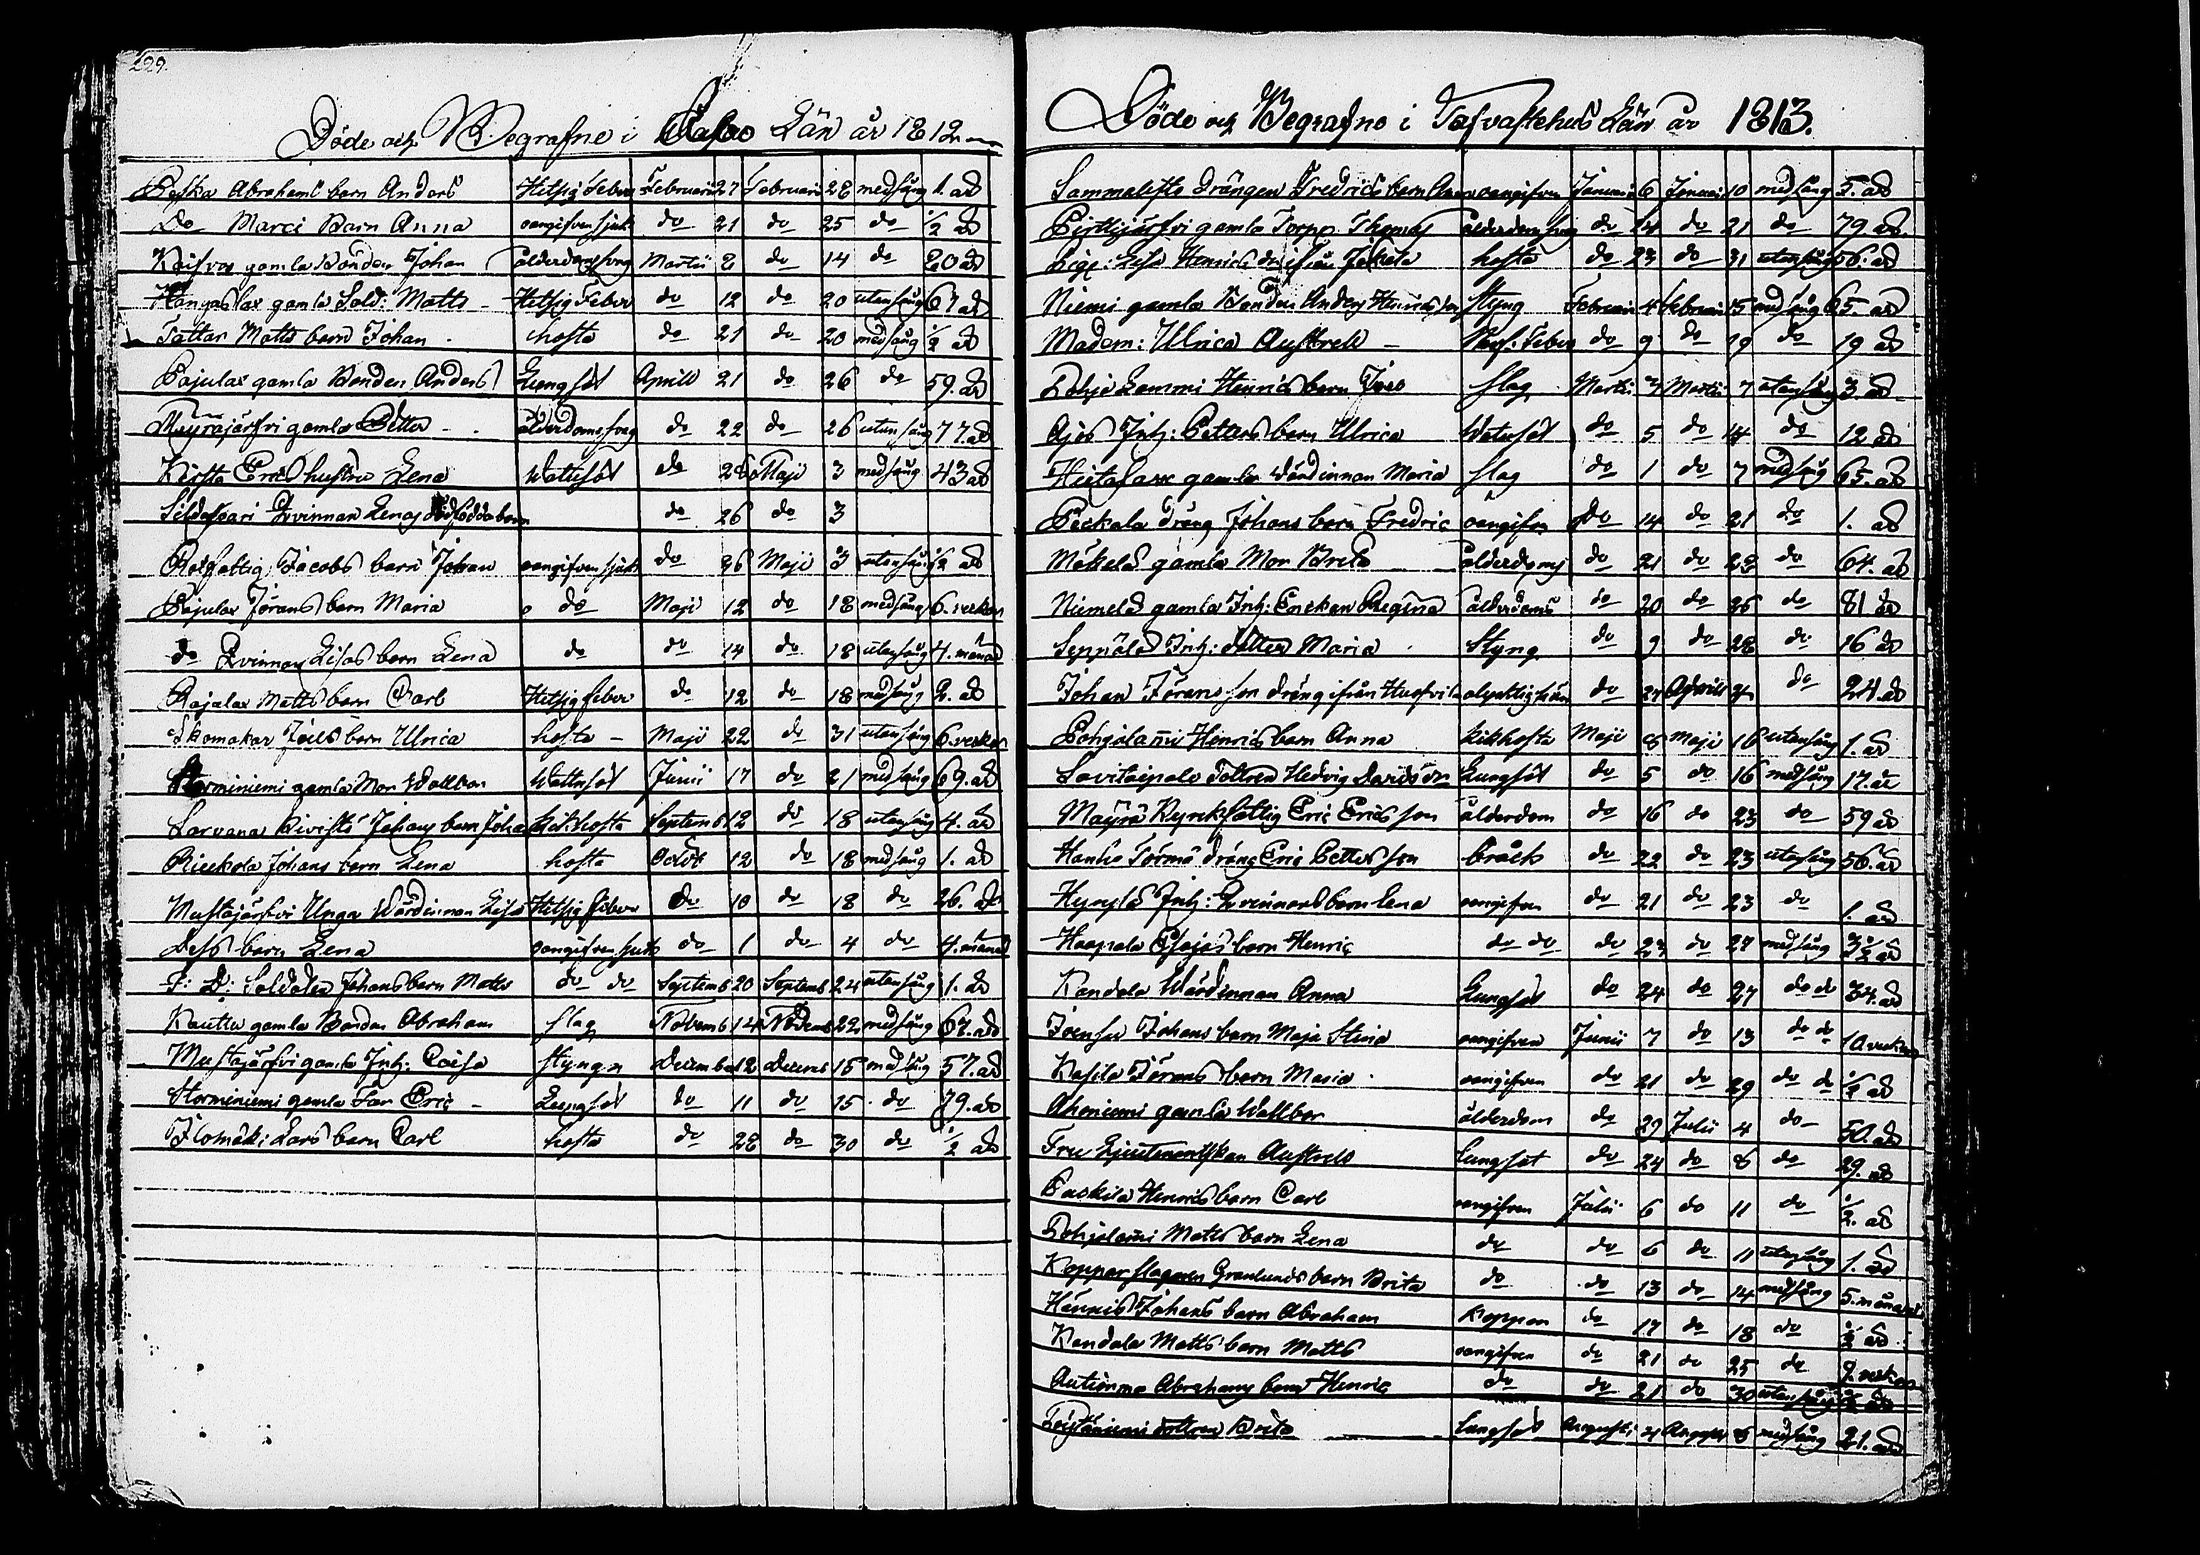 229.
Döde och Begrafne i Wasa Län år 1812
Peska Abrahams barn Anders Hetsig Feber Februarii 27 Februarii 28 med sång 1. år
Do Marci Barn Anna oangifven sjuk do 21 do 25 do 1/2 år
gamla Bonden Johan ålderdomsswag Martii 8 do 14 do 80 år
Kangaslax gamla Sold: Matts Hetsig Feber do 12 do 20 utan sång 67 år
Tattar Matts barn Johan hosta do 21 do 20 med sång 1/2 år
Pajulax gamla Bonden Anders Lungsot Aprill 21 do 26 do 59. år
Mäyräjärfvi gamla Petter ålderdomsswag do 22 do 26 utan sång 77. år
Kärsta Erics hustru Lena Wattusot do 26 Maji 3 med sång 43 år
Qvinnan Lenas dödfödda barn do 26 do 3
Rotfattig Jacobs barn Johan oangifven sjuk do 26 Maji 3 utan sång 1/2 år
Pajulax Jörans barn Maria do Maji 12 do 18 med sång 6. veckor
do Qvinnan Lisas barn Lena do do 14 do 18 utan sång 4. månad
Rajalax Matts barn Carl Hetsig feber do 12 do 18 med sång 2. år
Skomakar barn Ulrica hosta Maji 22 do 31 utan sång 6. veckor
Storminiemi gamla Mor Wallbor Wattusot Junii 17 do 21 med sång 69. år
Sarvana Kivistö Johans barn Joha kikhosta Septemb 12 do 18 utan sång 4. år
Rieckola Johans barn Lena hosta Octob 12 do 18 med sång 1. år
Mustajärfvi Unga Värdinnan Lisa Hetsig feber do 10 do 18 do 26. år
Dess barn Lena oangifven sjuk do 1 do 4 do 4. månad
F: D: Soldaten Johans barn Matts do do Septemb 20 Septemb 24 utan sång 1. år
Kauttu gamla Bonden Abraham slag Novemb 14 Novemb 22 med sång 67. år
Mustajärfvi gamla Inh: Caisa styngn Decemb 12 Decemb 15 med sång 57. år
Storminiemi gamla Far Eric Lungsot do 11 do 15 do 79. år
Ilomäki Lars barn Carl hosta do 28 do 30 do 1/2 år
Döde och Begrafne i Tafvastehus Län år 1813.
Sammalisto Drängen Fredrics barn oangifven Januari 6 Januari 10 med sång 5. år
Pirttijärfvi gamla Torpa: Thomas ålderdomsswag do 14 do 21 do 79 år.
Lisa Henrics dr ifrån hosta do 23 do 31 utan sång 56. år
Niemi gamla Bonden Anders Henricsson styng Februari 4 Februari 15 med sång 65. år
Madem: Ulrica Austrell Nerf: Feber do 9 do 19 do 19 år
Pohjo Lammi Henrics barn slag Martii 3 Martii 7 utan sång 3. år
Ajos Inh: Petters barn Ulrica Watusot do 5 do 14 do 12 år
gamla Värdinnan Maria slag do 1 do 7 med sång 65. år
Peckala dräng Johans barn Fredric oangifven do 14 do 21 do 1. år
Mäkelä gamla Mor Brita ålderdoms do 21 do 28 do 64. år
Niemelä gamla Inh: Enckan Regina ålderdoms do 20 do 26 do 81 år
Seppälä Inh: dotter Maria Styng do 9 do 28 do 16 år
Johan Jöransson dräng ifrån do 27 Aprill 4 do 24. år
Pohjalammi Henrics barn Anna kikhosta Maji 8 Maji 16 utan sång 1. år
Savitaipale Dottren Hedvig Davids dr Lungsot do 5 do 16 med sång 17. år
Mäyrä Kyrckfattig Eric Ericsson ålderdom do 16 do 23 do 59 år
Törmä dräng Eric Pettersson bråck do 22 do 23 utan sång 56. år
Inh: Qvinnans barn Lena oangifven do 21 do 23 do 1. år
Haapala Esajas barn Henric do do do 23 do 27 med sång 3 1/2 år
Kandola Värdinnan Anna Lungsot do 24 do 27 do do 34. år
Joensu Johans barn Maja Stina oangifven Junii 7 do 13 do do 10 veckor
Kasila Jörans barn Maria oangifven do 21 do 29 do do 1/2 år
Ahoniemi gamla Wallbor ålderdom do 29 Julii 4 do 50. år
Fru Lieutenantskan Austrell Lungsot do 24 do 8 do 29. år
Paskila Henrics barn Carl oangifven Julii 6 do 11 do 1/2. år
Pohjalammi Matts barn Lena do do 6 do 11 utan sång 1. år
Kopparslagaren Granlunds barn Brita do do 13 do 14 med sång 5. månad
Hännis Johans barn Abraham Koppor do 17 do 18 do 1/2 år
Kandola Matts barn Matts oangifven do 21 do 25 do 2. veckor
Autionma Abrahams barn Henric do do 21 do 30 utan sång 1/2 år
dottren Brita Lungsot Augusti 4 August 8 med sång 21. år